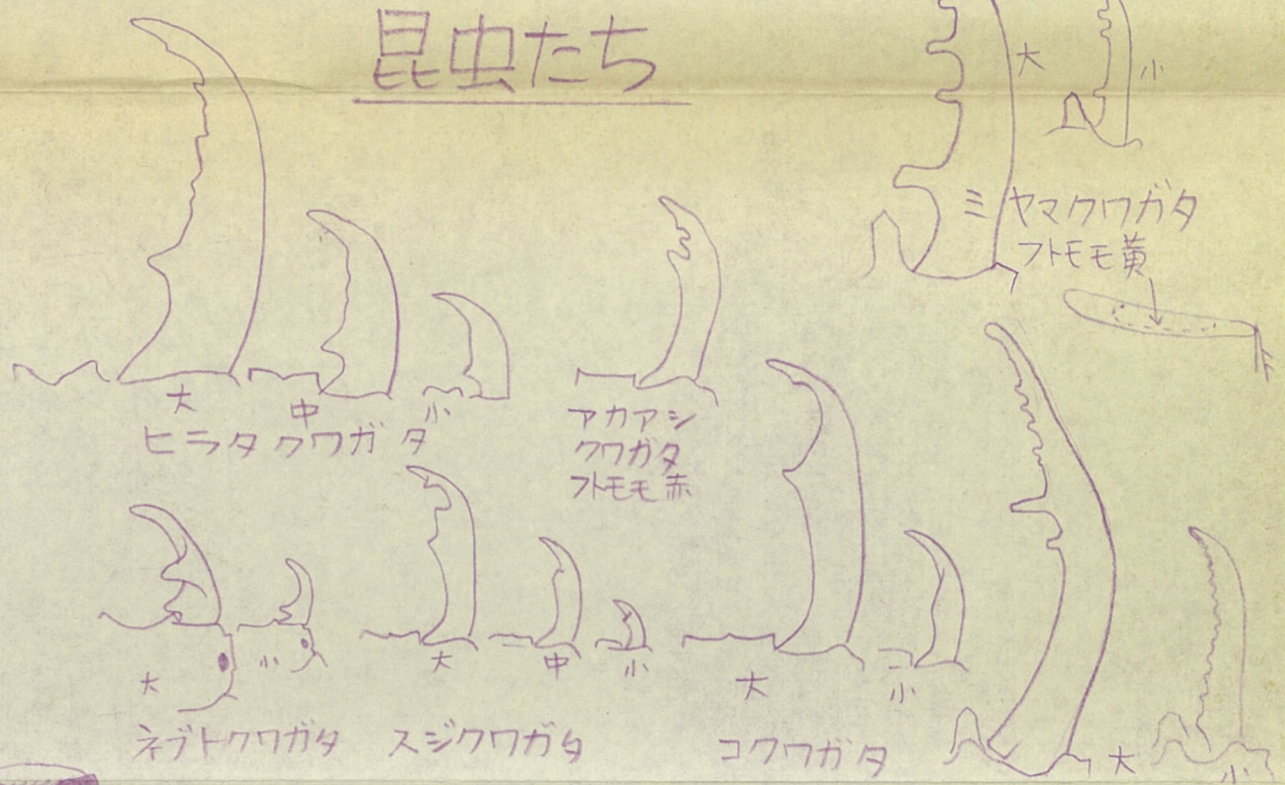 昆虫たち
大
小
ミヤマクワガタ
フトモモ黄
大
中
小
ヒラタクワガタ
アカアシ
クワガタ
フトモモ赤
大
小
ネブトクワガタ
大
中
小
スジクワガタ
大
小
コクワガタ
大
小